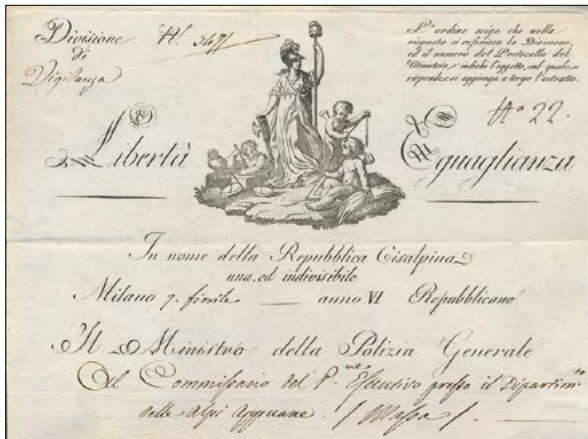 Divisione
di
Vigilanza
N.
L'ordine esige che nella
risposta si riferisca la Divisione,
ed il numero del Protocollo del
Ministro, s'indichi l'oggetto, sul quale si
risponde, e si aggiunga a tergo l'estratto.
No 22.
Libertà
Eguaglianza
In nome della Repubblica Cisalpina
una, ed indivisibile
Milano 7. fiorile anno VI Repubblicano
Il Ministro della Polizia Generale
Al Commissario del P.re Esecutivo presso il Dipartim.to
delle Alpi Appuane. / Massa /.